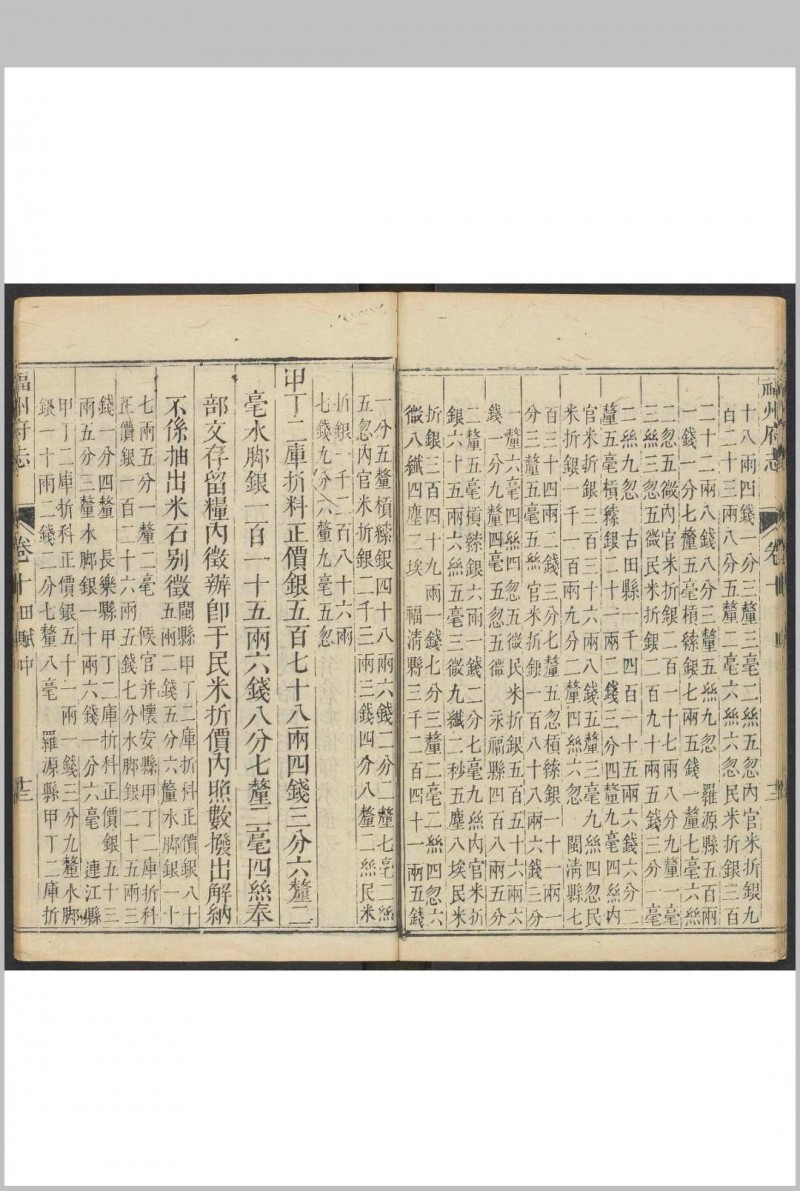 福州府志
卷十
十八兩四錢一分三釐三毫二絲五忽內官米折銀九
百二十三兩八分五釐二毫六絲六忽民米折銀三百
二十二兩八錢八分三釐五絲九忽 羅源縣五百兩
一錢一分七釐五毫槓縧銀七兩五錢一釐七毫六絲
二忽五微內官米折銀二百一十七兩八分九釐一毫
三絲三忽五微民米折銀二百九十兩五錢三分一毫
二絲九忽 古田縣一千四百一十五兩六錢六分二
釐五毫槓縧銀二十一兩二錢三分四釐九毫四絲內
官米折銀三百三十六兩八錢五釐三毫九絲四忽民
米折銀一千一百兩九分二釐四絲六忽 閩清縣七
百三十四兩二錢三分七釐五忽槓縧銀一十一兩一
分三釐五毫五絲官米折銀一百八十八兩六錢三分
一釐六毫四絲四忽五微民米折銀五百五十六兩六
錢一分九釐四毫五忽五微 永福縣四百一十八兩五分
二釐五毫槓縧銀六兩一錢二分七毫九絲內官米折
銀六十四兩六絲五毫三微九纖二秒五塵八埃民米
折銀三百四十九兩一錢七分三釐二毫四絲四忽六
微八纖四塵二埃 福清縣三千二百四十一兩五錢
一分五釐槓縧銀四十八兩六錢二分二釐七毫二絲
五忽內官米折銀二千三兩三錢四分八釐二絲民米
折銀一千二百八十六兩
七錢九分六釐九毫五忽
甲丁二庫折料正價銀五百七十八兩四錢三分六釐二
毫水脚銀一百一十五兩六錢八分七釐二毫四絲奉
部文存留糧內徵辦卽于民米折價內照數撥出解納
不係抽出米石別徵閩縣甲丁二庫折科正價銀八十
五兩二錢五分六釐水脚銀一十
七兩五分一釐二毫 候官并懷安縣甲丁二庫折科
正價銀一百二十六兩五錢七分水脚銀二十五兩三
錢一分四釐 長樂縣甲丁二庫折科正價銀五十三
兩五分三釐水脚銀一十兩六錢一分六毫 連江縣
甲丁二庫折科正價銀五十一兩一錢三分九釐水脚
銀一十兩二錢二分七釐八毫 羅源縣甲丁二庫折
福州府志
卷十田賦中
十三